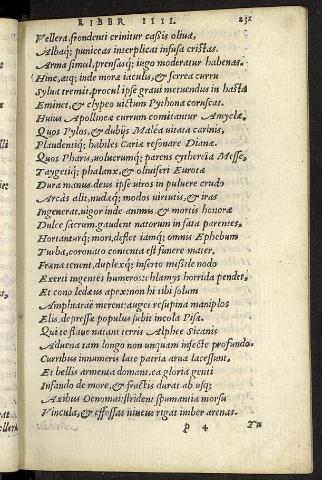 LIBER IIII. 231
Vellera, frondenti crinitur cassis oliua,
Albaq; puniceas interplicat infula cristas.
Arma simul, prensasq; iugo moderatur habenas.
Hinc, atq; inde moræ iaculis, & ferrea curru
Sylua tremit, procul ipse graui metuendus in hasta
Eminet, & clypeo uictum Pythona coruscat.
Huius Apollineæ currum comitantur Amyclæ.
Quos Pylos, & dubijs Malea uitata carinis,
Plaudentiq; habiles Caria resonare Dianæ.
Quos Pharis, uolucrumq; parens cytherëia Messe,
Taygetiq; phalanx, & oliuiferi Eurotæ
Dura manus. deus ipse uiros in puluere crudo
Arcas alit, nudæq; modos uirtutis, & iras
Ingenerat. uigor inde animis, & mortis honoræ
Dulce sacrum. gaudent natorum in fata parentes,
Hortanturq; mori, deflet iamq; omnis Ephebum
Turba, coronato contenta est funere mater.
Fræna tenent, duplexq; inserto missile nodo
Exerti ingentes humeros: chlamys horrida pendet,
Et cono ledæus apex: non hi tibi solum
Amphiaraë merent: auget resupina maniplos
Elis, depressæ populus subit incola Pisæ.
Qui te flaue natant terris Alphee Sicanis
Aduena tam longo non unquam infecte profundo.
Curribus innumeris late patria arua lacessunt,
Et bellis armenta domant. ea gloria genti
Infando de more, & fractis durat ab usq;
Axibus Oenomai: strident spumantia morsu
Vincula, & effossas niueus rigat imber arenas.
P 4 Tu